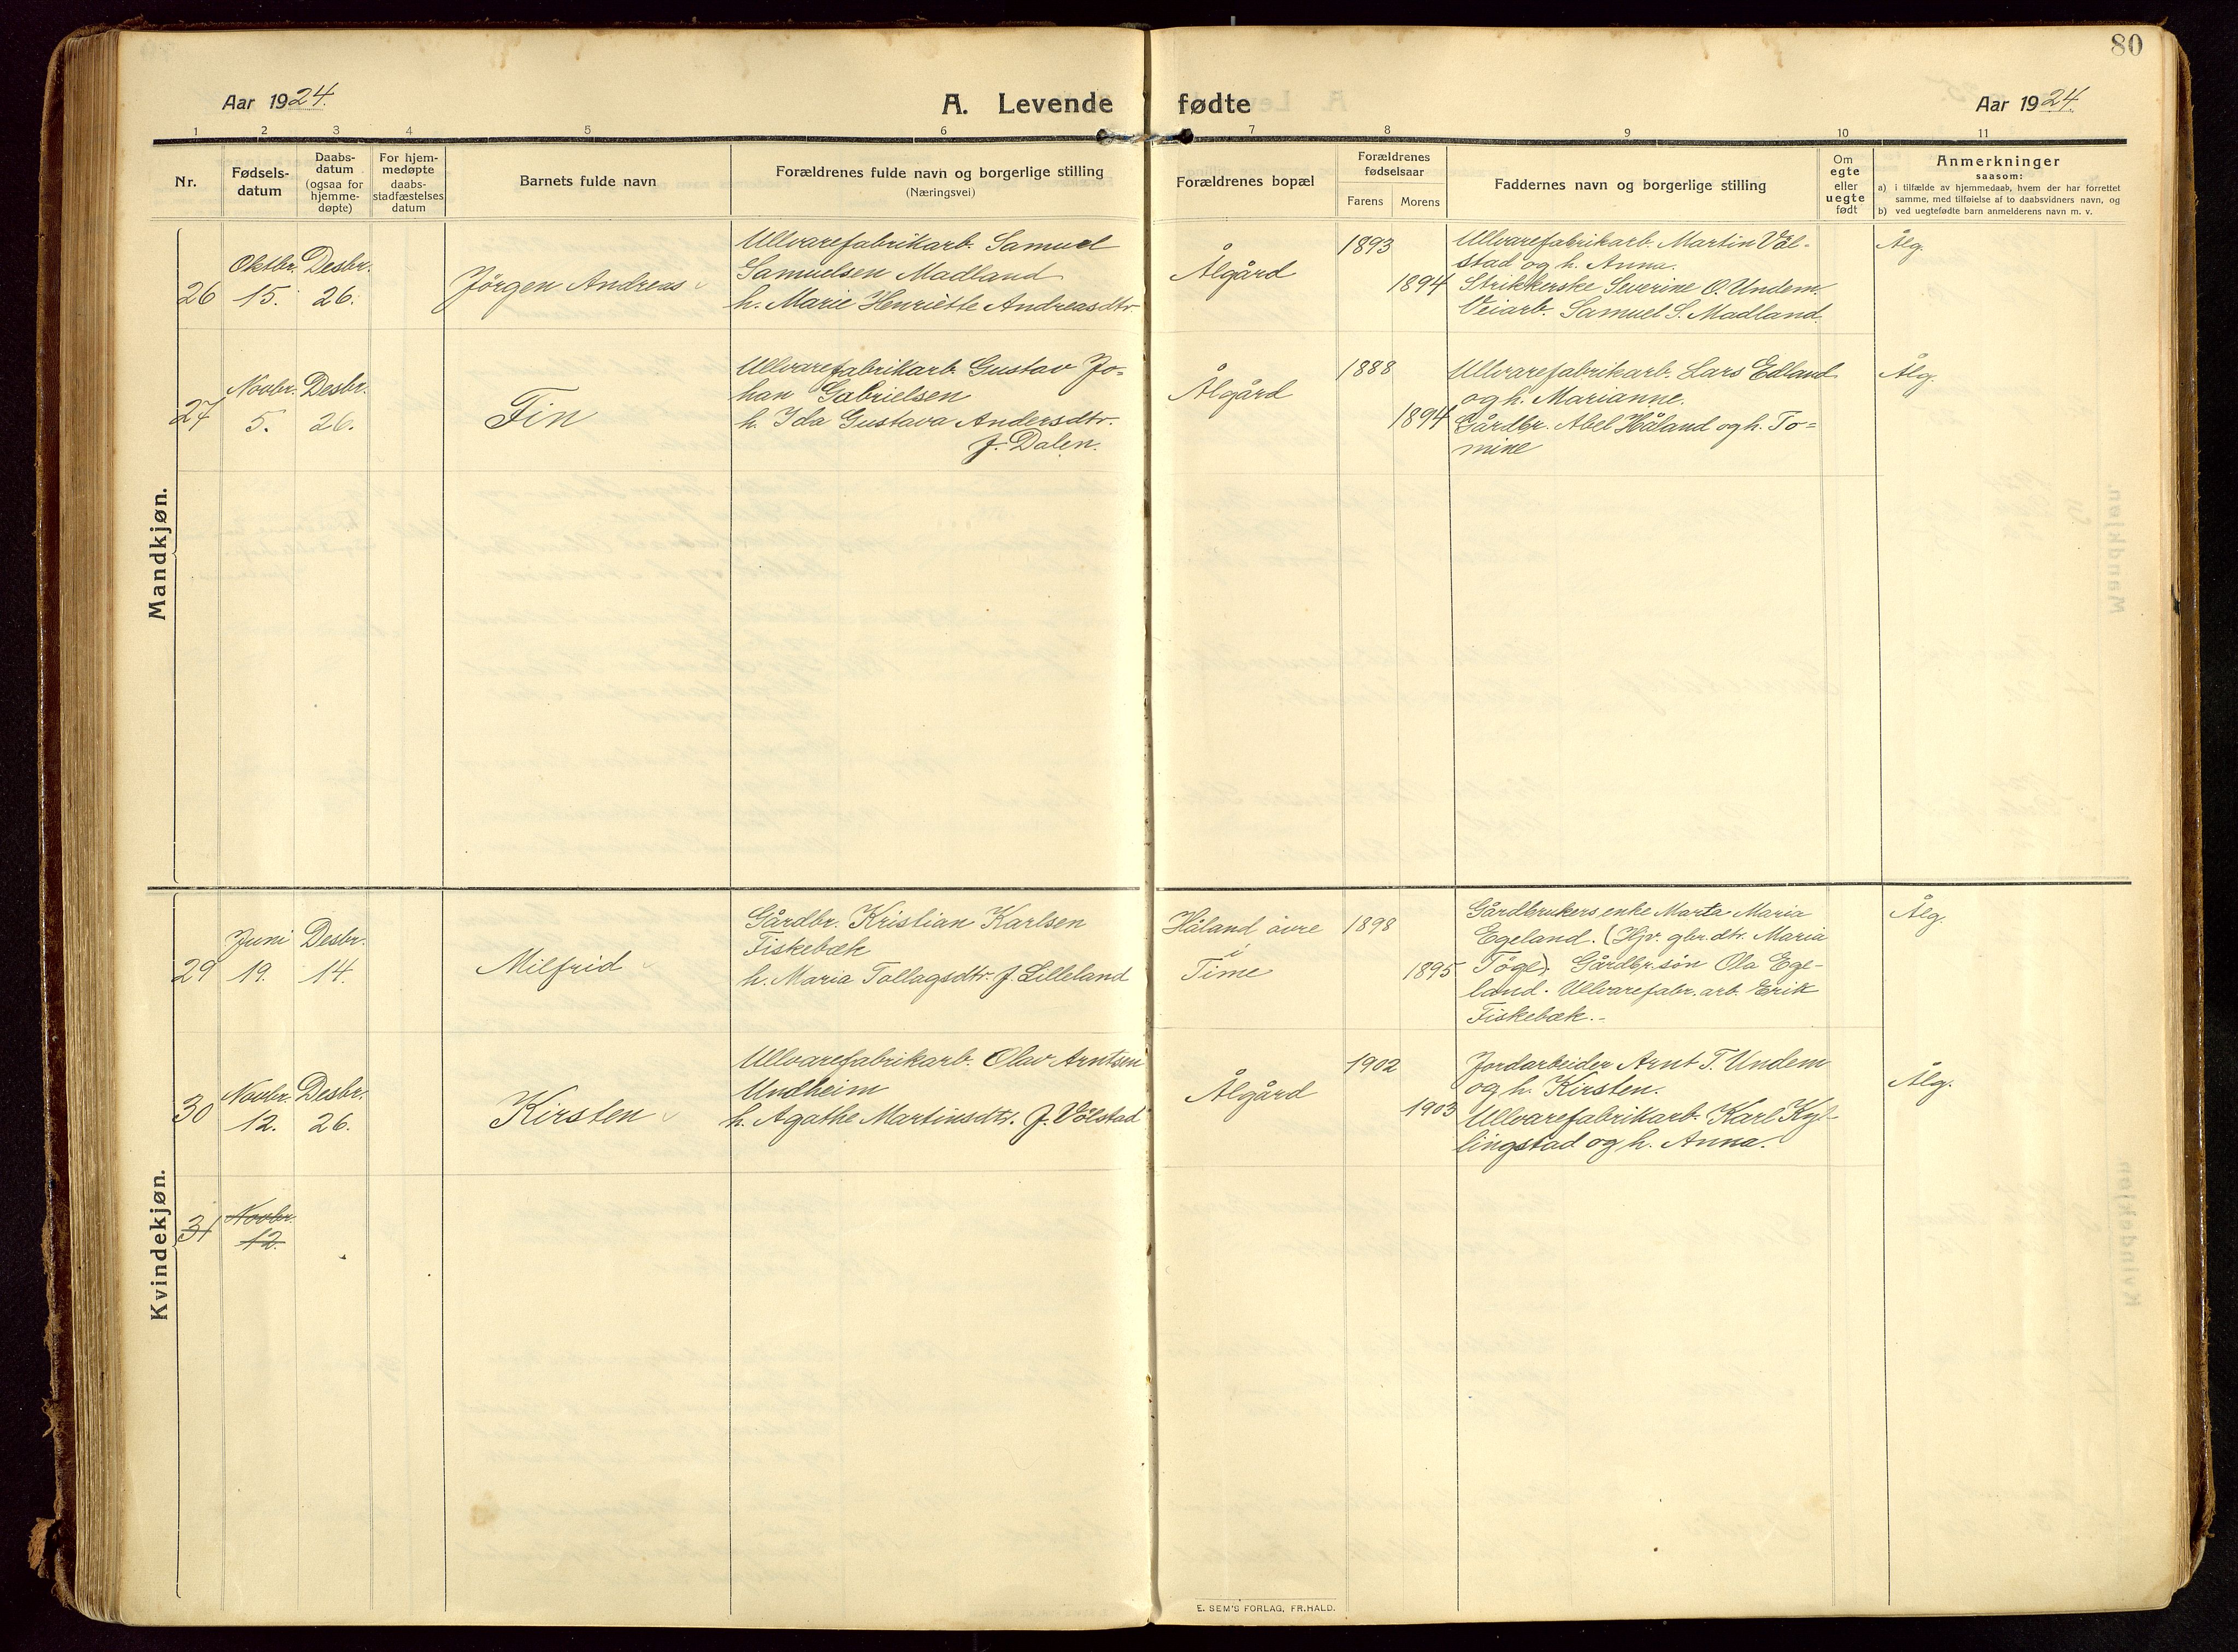 80
Aar 1924.
A. Levende fødte
Aar 1924.
1 2 3 4 5 6 7 8 9 10 11
Nr.
Fødsels-
datum
Daabs-
datum
(ogsaa for
hjemme-
døpte)
For hjem-
medøpte
daabs-
stadfæstelses
datum
Barnets fulde navn
Forældrenes fulde navn og borgerlige stilling
(Næringsvei)
Forældrenes bopæl
Forældrenes
fødselsaar
Farens Morens
Faddernes navn og borgerlige stilling
Om
egte
eller
uegte
født
Anmerkninger
saasom:
a) i tilfælde av hjemmedaab, hvem der har forrettet
samme, med tilføielse af to daabsvidners navn, og
b) ved uegtefødte barn anmelderens navn m. v.
Mandkjøn.
26
Oktbr.
15.
Desbr.
26.
Jörgen Andreas
Ullvarefabrikarb. Samuel
Samuelsen Madland
h. Marie Henriette Andreasdtr.
Ålgård
1893
1894
Ullvarefabrikarb. Martin Völ-
stad og h. Anna.
Strikkerske Severine O. Undem.
Veiarb. Samuel S. Madland.
Ålg.
27
Novbr.
5.
Desbr.
26.
Fin
Ullvarefabrikarb. Gustav Jo=
han Gabrielsen
h. Ida Gustava Andersdtr.
f. Dalen.
Ålgård
1888
1894
Ullvarefabrikarb. Lars Edland
og h. Marianne.
Gårdbr. Abel Håland og h. To=
mine
Ålg.
Kvindekjøn.
29
Juni
19.
Desbr.
14.
Milfrid
Gårdbr. Kristian Karlsen
Fiskebæk
h. Maria Tollagsdtr. f. Lilleland
Håland övre
i
Time
1898
1895
Gårdbrukers enke Marta Maria
Egeland. (Hjv. gbr. dtr. Maria
Töge). Gårdbr.sön Ola Ege-
land. Ullvarefabr. arb. Erik
Fiskebæk.-
Ålg.
30
Novbr.
12.
Desbr.
26.
Kirsten
Ullvarefabrikarb. Olav Arntsen
Undheim
h. Agathe Martinsdtr. f. Völstad
Ålgård
1902
1903
Jordarbeider Arnt T. Undem
og h. Kirsten.
Ullvarefabrikarb. Karl Kyl-
lingstad og h. Anna.
Ålg.
31
Novbr.
12.
E. SEM'S FORLAG, FR.HALD.